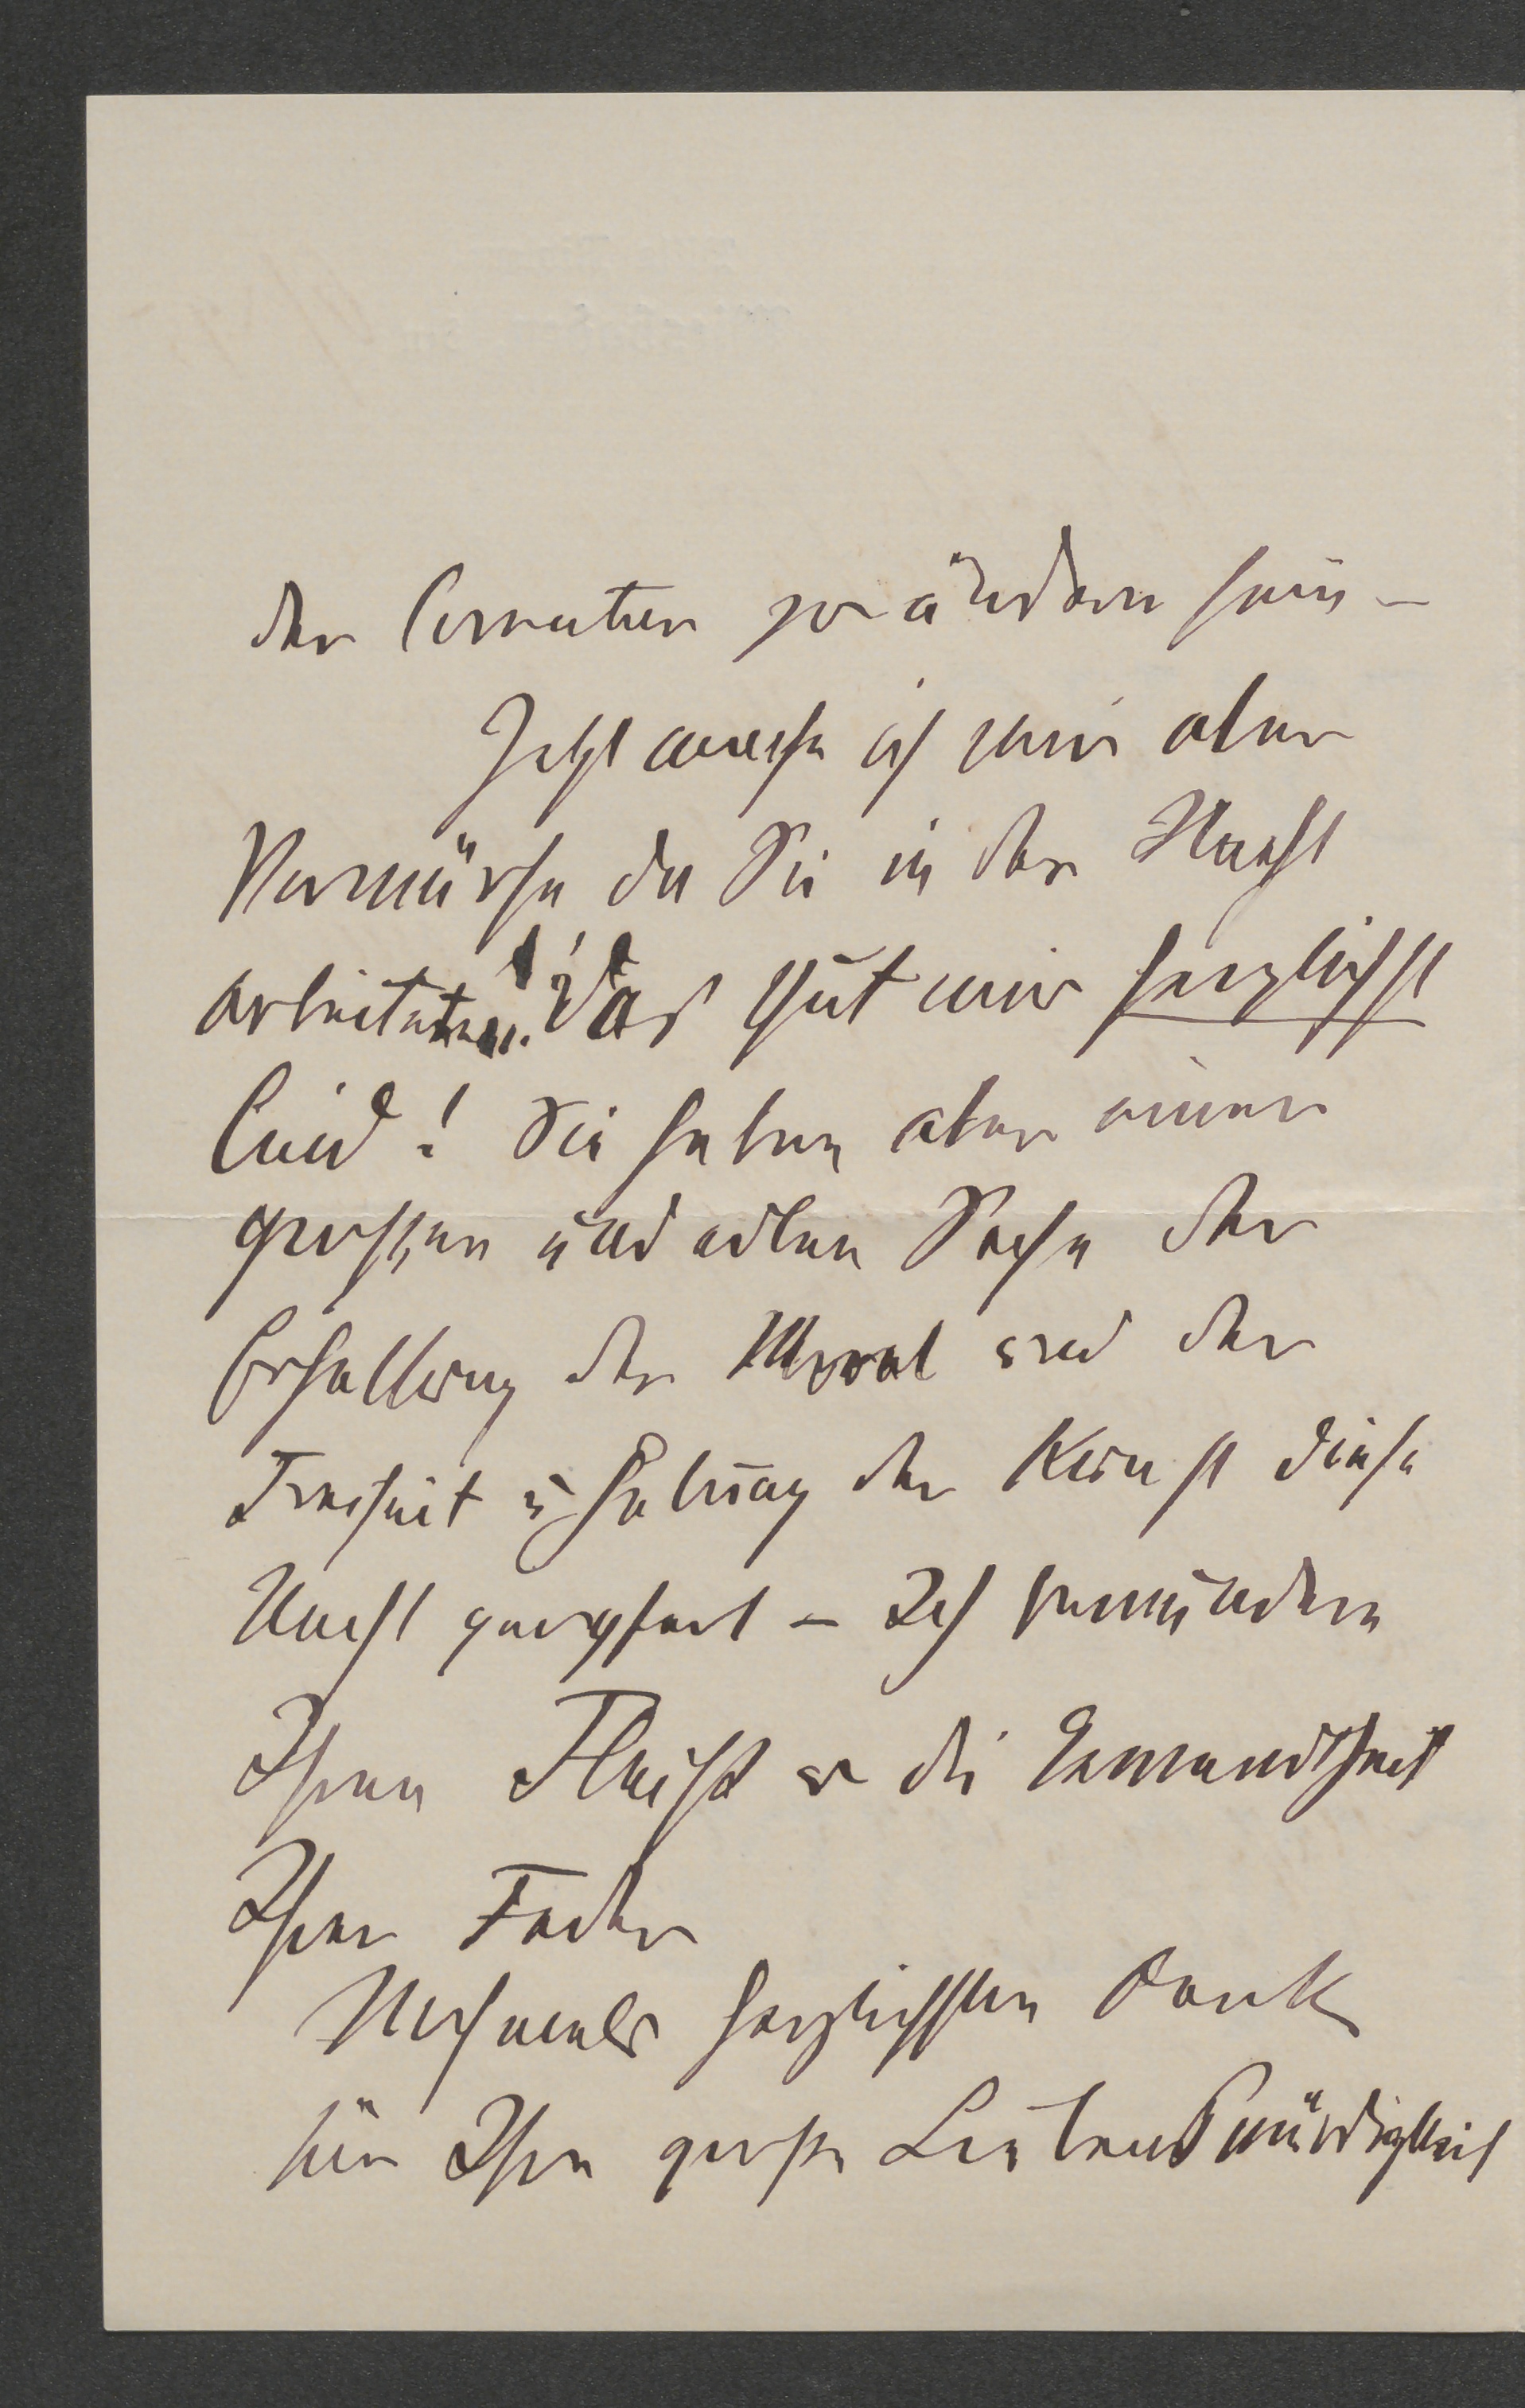 der Correctur zu ändern sein –
Jetzt mache ich mir aber
Vorwürfe da Sie in der Nacht
arbeiteten! Das thut mir herzlichst
Leid! Sie haben aber einer
grossen und edlen Sache der
Erhaltung der Moral und der
Freiheit u Hebung der Kunst diese
Nacht geopfert – Ich bewundere
Ihren Fleiß u die Gewandtheit
Ihrer Feder
Nochmals herzlichsten Dank
für Ihre große Liebenswürdigkeit